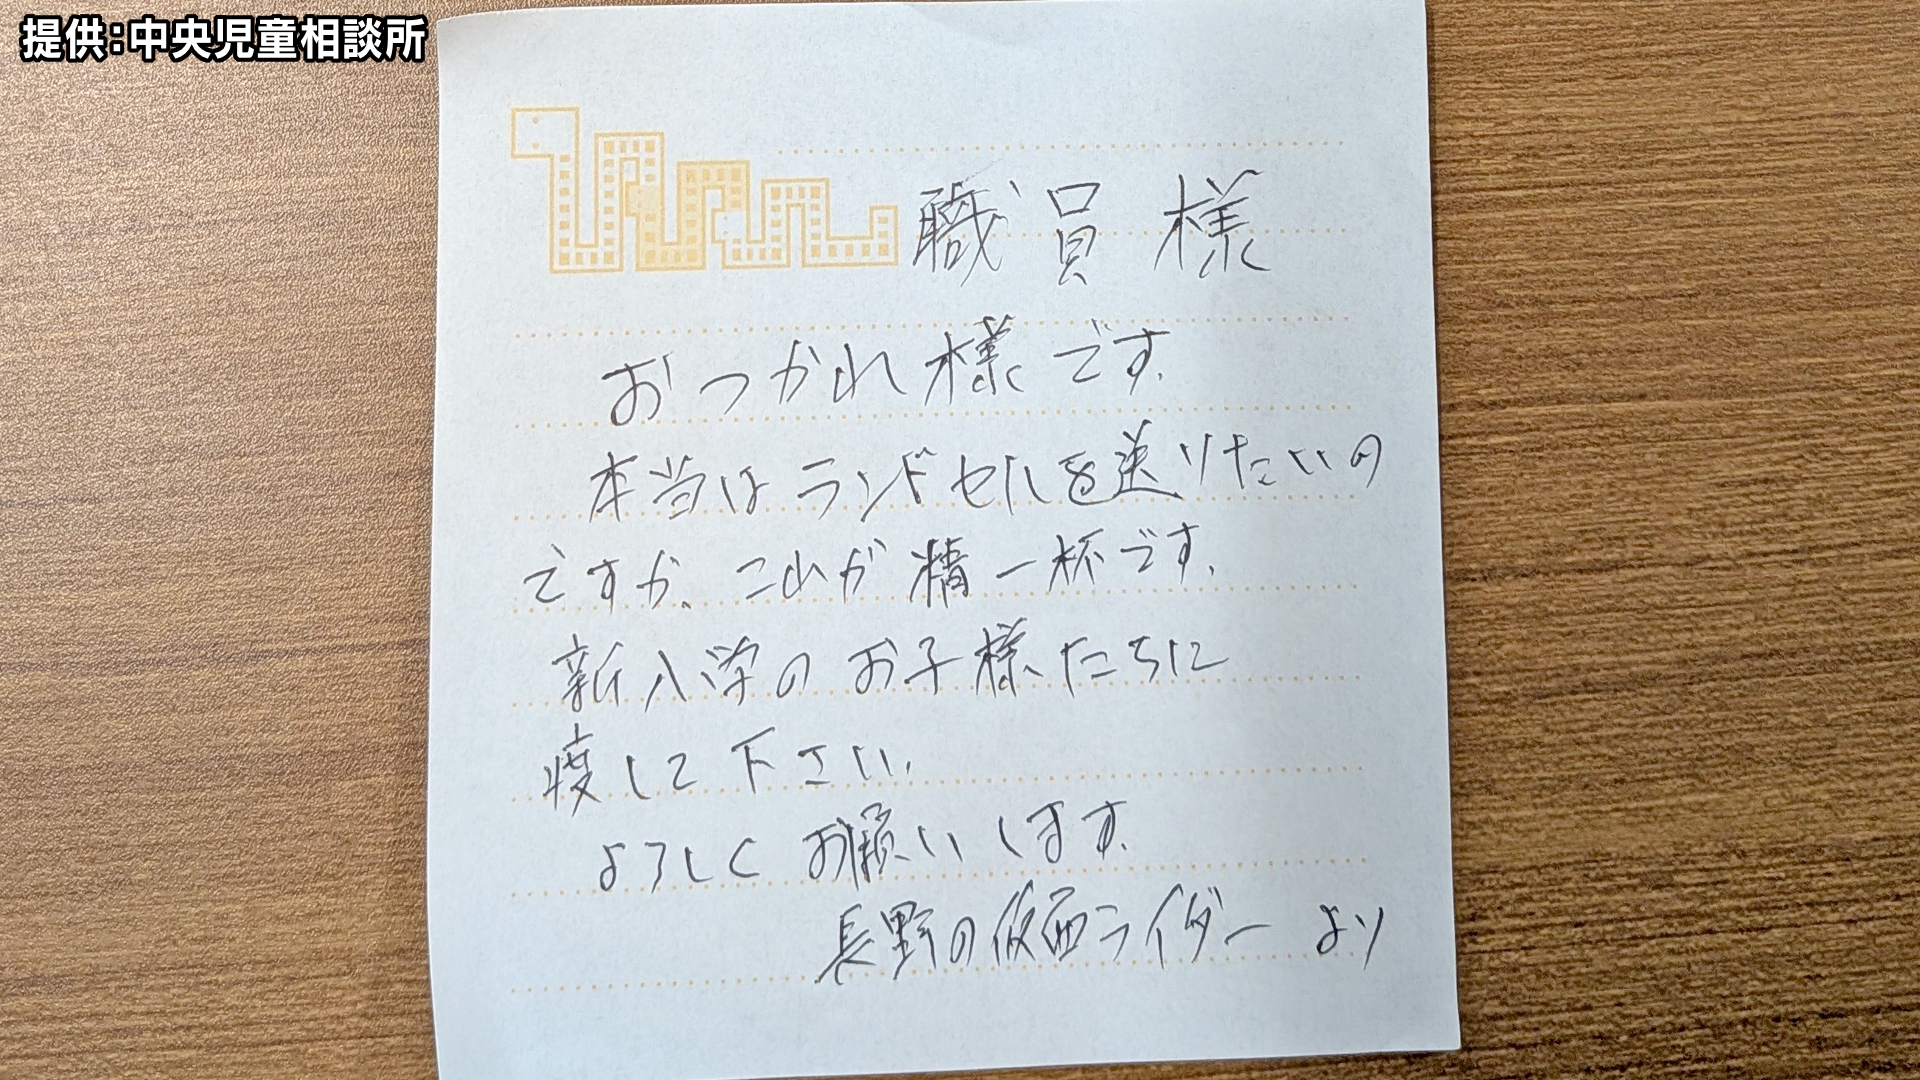 提供:中央児童相談所
職員様
おつかれ様です.
本当はランドセルを送りたいの
ですが、これが精一杯です.
新入学のお子様たちに
渡して下さい.
よろしくお願いします.
長野の仮面ライダーより